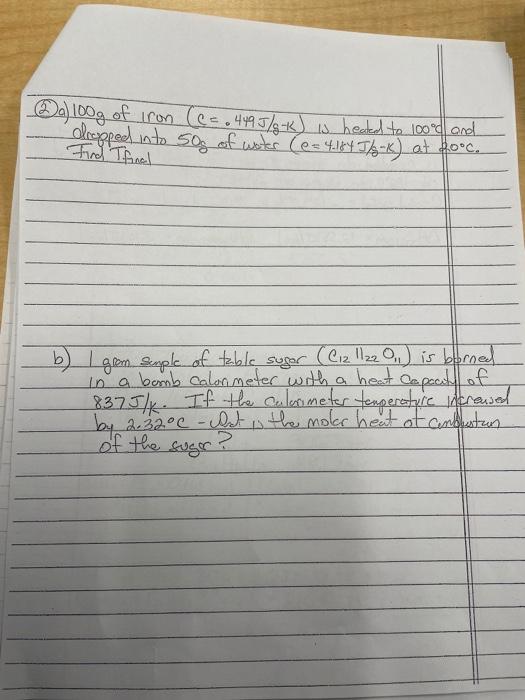 ② a) 100g of iron (c = .449 J/g-K) is heated to 100°C and
dropped into 50g of water (c = 4.184 J/g-K) at 20°C.
Find Tfinal
b) 1 gram sample of table sugar (C12 H22 O11) is burned
in a bomb calorimeter with a heat capacity of
837 J/K. If the calorimeter temperature increased
by 2.32°C - What is the molar heat of combustion
of the sugar?